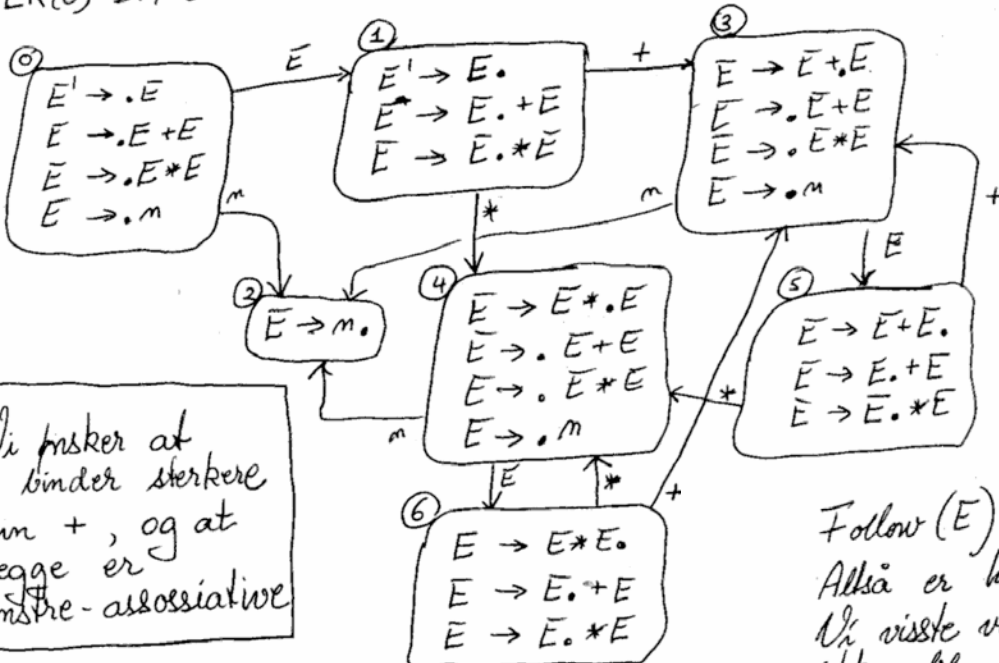 0
E' → .E
E → .E+E
E → .E*E
E → .n
E
n
1
E' → E.
E → E.+E
E → E.*E
+
*
3
E → E+.E
E → .E+E
E → .E*E
E → .n
n
E
+
2
E → n.
4
E → E*.E
E → .E+E
E → .E*E
E → .n
n
E
*
5
E → E+E.
E → E.+E
E → E.*E
*
6
E → E*E.
E → E.+E
E → E.*E
+
ønsker at
binder sterkere
+, og at
er
-assossiative
Follow (E)
Altså er
Vi visste